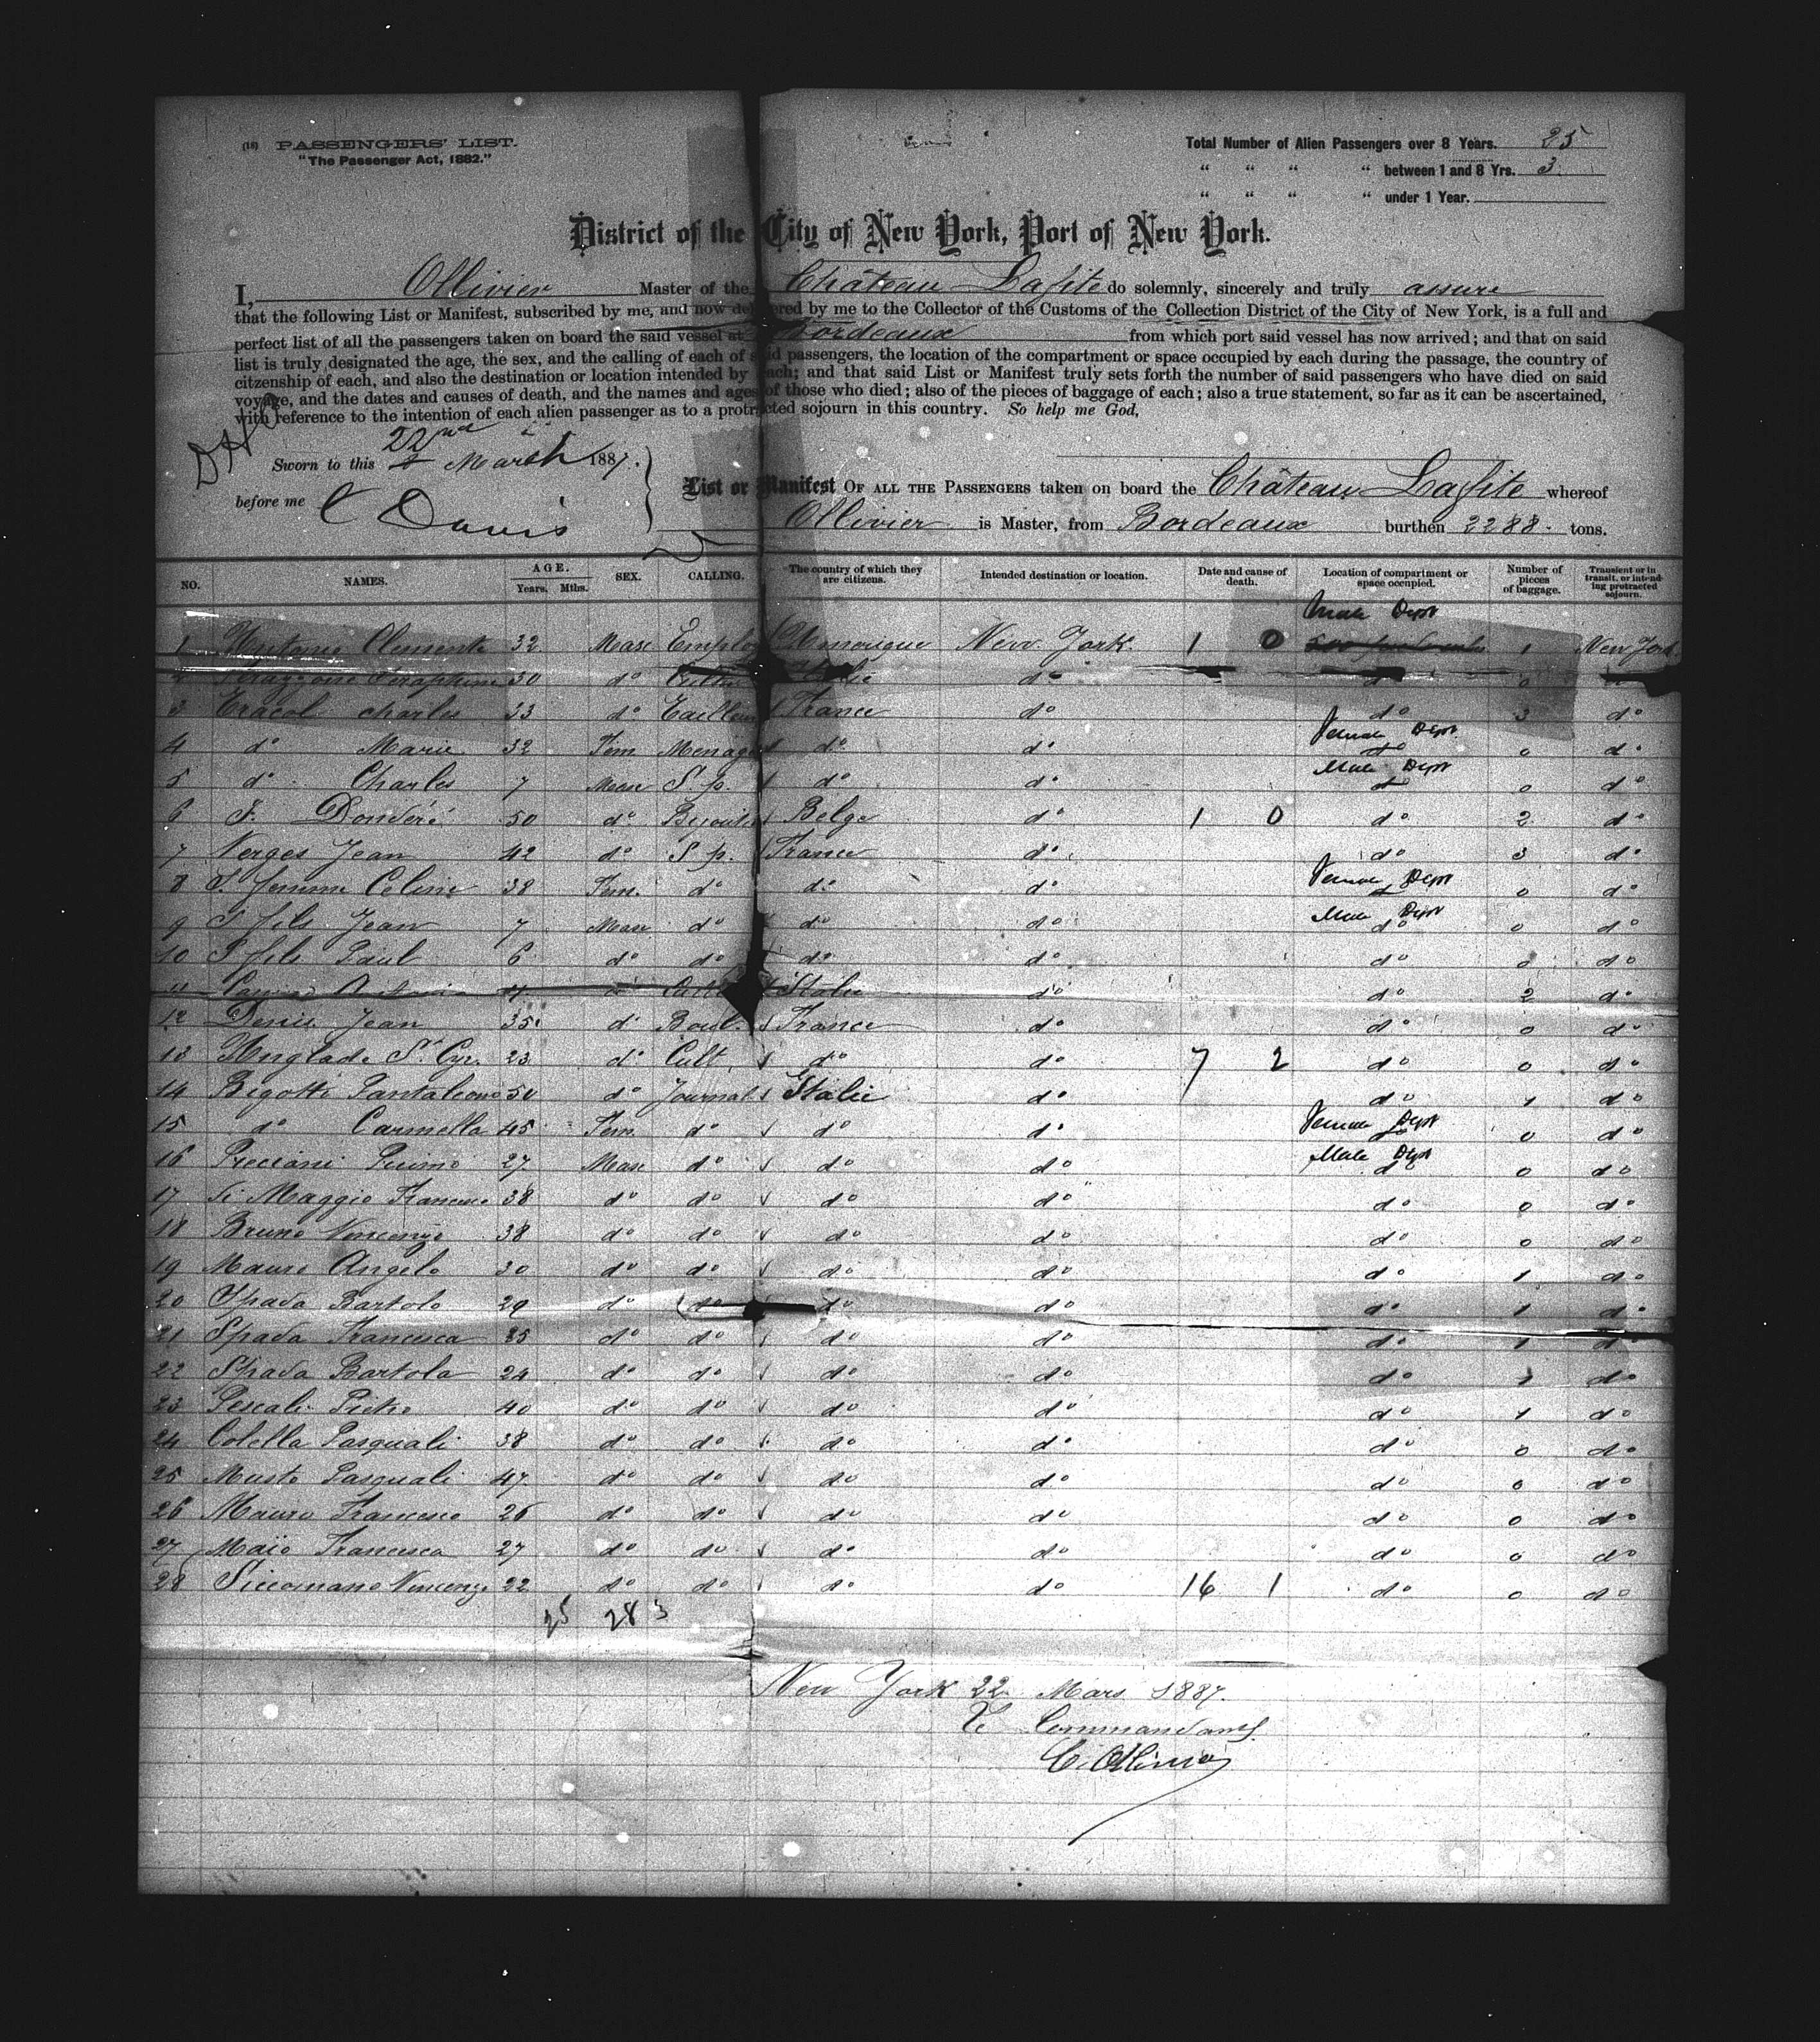 (18) PASSENGERS' LIST.
"The Passenger Act, 1882."
Total Number of Alien Passengers over 8 Years. 25
" " " " between 1 and 8 Yrs. 3
" " " " under 1 Year.
District of the City of New York, Port of New York.
I, Ollivier Master of the Château Lafite do solemnly, sincerely and truly assure
that the following List or Manifest, subscribed by me, and now delivered by me to the Collector of the Customs of the Collection District of the City of New York, is a full and
perfect list of all the passengers taken on board the said vessel at Bordeaux from which port said vessel has now arrived; and that on said
list is truly designated the age, the sex, and the calling of each of said passengers, the location of the compartment or space occupied by each during the passage, the country of
citzenship of each, and also the destination or location intended by each; and that said List or Manifest truly sets forth the number of said passengers who have died on said
voyage, and the dates and causes of death, and the names and ages of those who died; also of the pieces of baggage of each; also a true statement, so far as it can be ascertained,
with reference to the intention of each alien passenger as to a protracted sojourn in this country. So help me God,
Sworn to this 22nd March 1887.
before me C Davis
List or Manifest OF ALL THE PASSENGERS taken on board the Château Lafite whereof
Ollivier is Master, from Bordeaux burthen 2288 tons.
NO. NAMES. AGE. Years. Mths. SEX. CALLING. The country of which they are citizens. Intended destination or location. Date and cause of death. Location of compartment or space occupied. Number of pieces of baggage. Transient or in transit, or intending protracted sojourn.
Male Dept
1 Clemente 32 Masc Employ New York 1 0 1 New York
2 Seraphine 30 do do do 0
3 Eracol charles 33 do Tailleur France do do 3 do
4 do Marie 32 Fem Menag do do Female Dept 0 do
5 do Charles 7 Masc S. p. do do Male Dept 0 do
6 F. Donderé 50 do Belge do 1 0 do 2 do
7 Verges Jean 42 do S p. France do do 3 do
8 Celine 38 Fem. do do do Female Dept 0 do
9 fils Jean 7 Masc do do do Male Dept do 0 do
10 fils Paul 6 do do do do do 0 do
11 Italie do do 2 do
12 Denis Jean 35 do Boul. France do do 0 do
13 Anglade St Cyr. 23 do Cult do do 7 2 do 0 do
14 Bigotti Pantaleone 50 do Journal Italie do do 1 do
15 do Carmella 45 Fem do do do Female Dept 0 do
16 Primo 27 Masc do do do Male Dept do 0 do
17 Maggio 38 do do do do do 0 do
18 Bruno Vincenzo 38 do do do do do 0 do
19 Mauro Angelo 30 do do do do do 1 do
20 Spada Bartolo 29 do do do do do 1 do
21 Spada Francesca 25 do do do do do 1 do
22 Spada Bartola 24 do do do do do 1 do
23 Pescali Pietro 40 do do do do do 1 do
24 Colella Pasquali 38 do do do do do 0 do
25 Musto Pasquali 47 do do do do do 0 do
26 Mauro Francesco 26 do do do do do 0 do
27 Maïo Francesca 27 do do do do do 0 do
28 Siccomano Vincenzo 22 do do do do 16 1 do 0 do
25 28 3
New York 22 Mars 1887.
Le Commandant
C. Ollivier